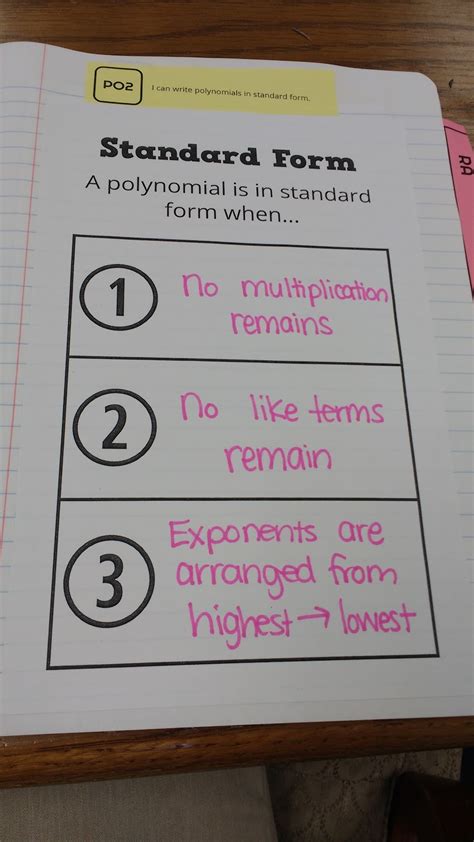 PO2
I can write polynomials in standard form.
RA
Standard Form
A polynomial is in standard
form when...
1
No multiplication
remains
2
No like terms
remain
3
Exponents are
arranged from
highest → lowest